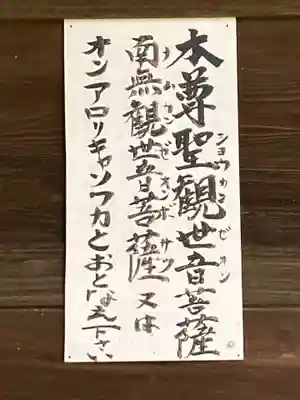 本尊聖観世音菩薩
ショウカンゼオン
南無観世音菩薩又は
ナムカンゼオンボサツ
オンアロリキャソワカとおとなえ下さい